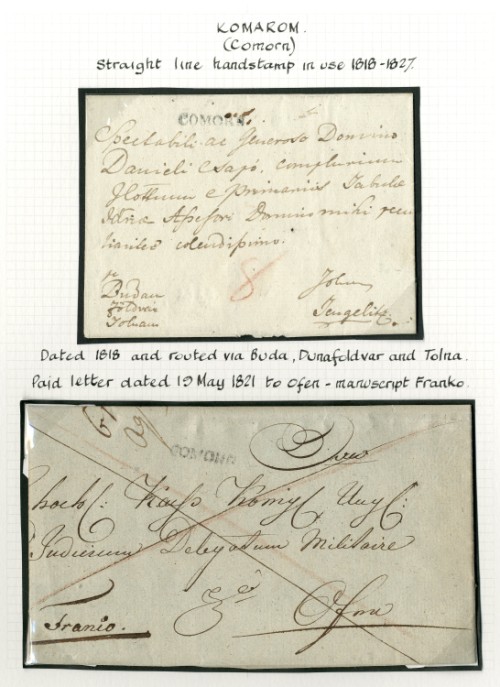 KOMAROM.
(Comorn)
Straight line handstamp in use 1818-1827.
COMORN.
Spectabili ac Generoso Domino
Danieli Csapó, complurium
I Cottuum e primariis Tabulæ
Assessori Domino mihi
colendissimo.
pr
Budam
Földvar
Tolnam
Tengelitz
8
Dated 1818 and routed via Buda, Dunafoldvar and Tolna.
Paid letter dated 19 May 1821 to Ofen - manuscript Franko.
COMORN
Dem
hochl: Kays Königl Ung:
Judicium Delegatum Militaire
zu
Ofen
Franco.